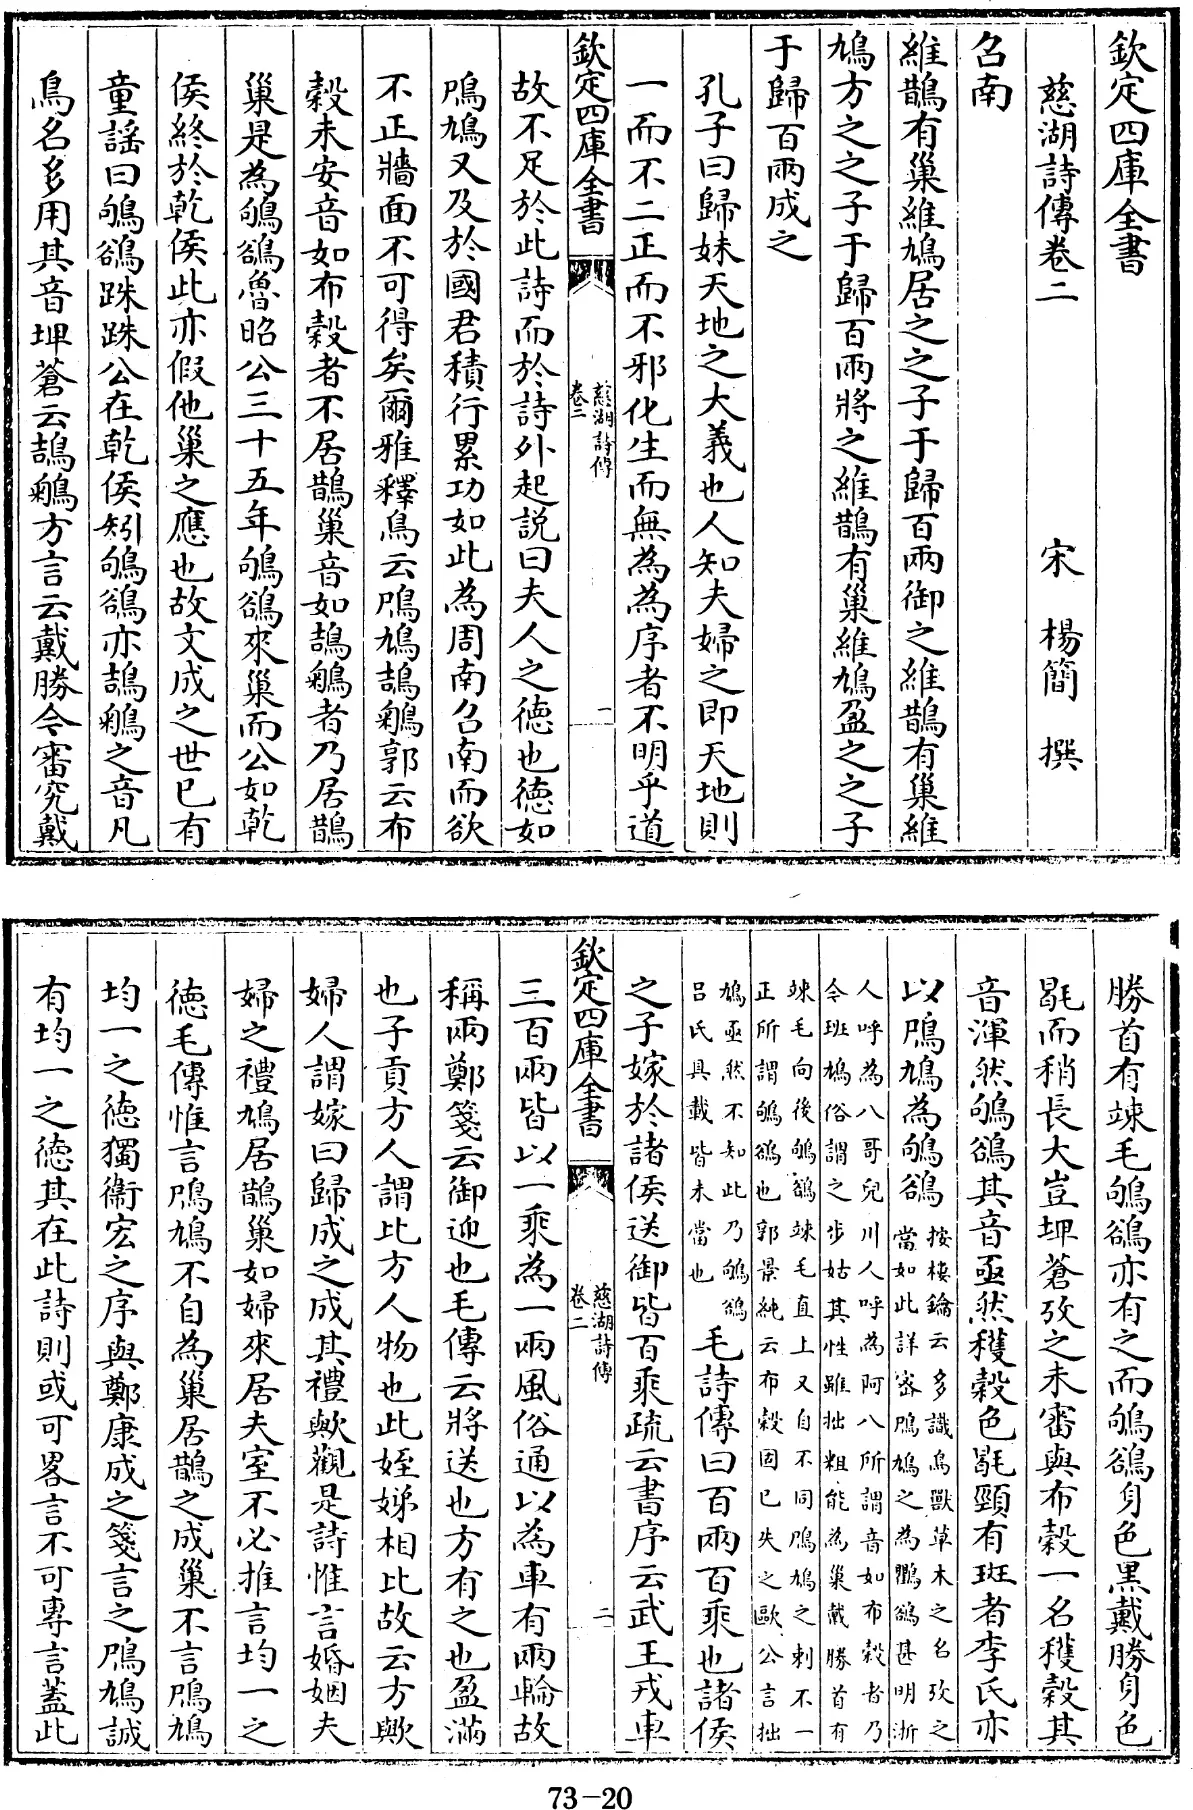 欽定四庫全書
慈湖詩傳卷二
宋 楊簡 撰
召南
維鵲有巢維鳩居之之子于歸百兩御之維鵲有巢維
鳩方之之子于歸百兩將之維鵲有巢維鳩盈之之子
于歸百兩成之
孔子曰歸妹天地之大義也人知夫婦之即天地則
一而不二正而不邪化生而無為為序者不明乎道
欽定四庫全書
慈湖詩傳
卷二
一
故不足於此詩而於詩外起說曰夫人之德也德如
鳲鳩又及於國君積行累功如此為周南召南而欲
不正牆面不可得矣爾雅釋鳥云鳲鳩鴶鵴郭云布
穀未安音如布穀者不居鵲巢音如鴶鵴者乃居鵲
巢是為鴝鵒魯昭公三十五年鴝鵒來巢而公如乾
侯終於乾侯此亦假他巢之應也故文成之世已有
童謡曰鴝鵒跦跦公在乾侯矧鴝鵒亦鴶鵴之音凡
鳥名多用其音埤蒼云鴶鵴方言云戴勝今審究戴
勝首有竦毛鴝鵒亦有之而鴝鵒身色黑戴勝身色
毦而稍長大豈埤蒼攷之未審與布穀一名穫穀其
音渾然鴝鵒其音亟然穫穀色毦頸有斑者李氏亦
以鳲鳩為鴝鵒
按樓鑰云多識鳥獸草木之名攷之
當如此詳密鳲鳩之為鸜鵒甚明浙
人呼為八哥兒川人呼為阿八所謂音如布穀者乃
今班鳩俗謂之步姑其性雖拙粗能為巢戴勝首有
竦毛向後鴝鵒竦毛直上又自不同鳲鳩之刺不一
正所謂鴝鵒也郭景純云布穀固已失之歐公言拙
鳩亟然不知此乃鴝鵒
呂氏具載皆未當也
毛詩傳曰百兩百乘也諸侯
之子嫁於諸侯送御皆百乘疏云書序云武王戎車
欽定四庫全書
慈湖詩傳
卷二
二
三百兩皆以一乘為一兩風俗通以為車有兩輪故
稱兩鄭箋云御迎也毛傳云將送也方有之也盈滿
也子貢方人謂比方人物也此姪娣相比故云方歟
婦人謂嫁曰歸成之成其禮歟觀是詩惟言婚姻夫
婦之禮鳩居鵲巢如婦來居夫室不必推言均一之
德毛傳惟言鳲鳩不自為巢居鵲之成巢不言鳲鳩
均一之德獨衛宏之序與鄭康成之箋言之鳲鳩誠
有均一之德其在此詩則或可畧言不可專言蓋此
73－20